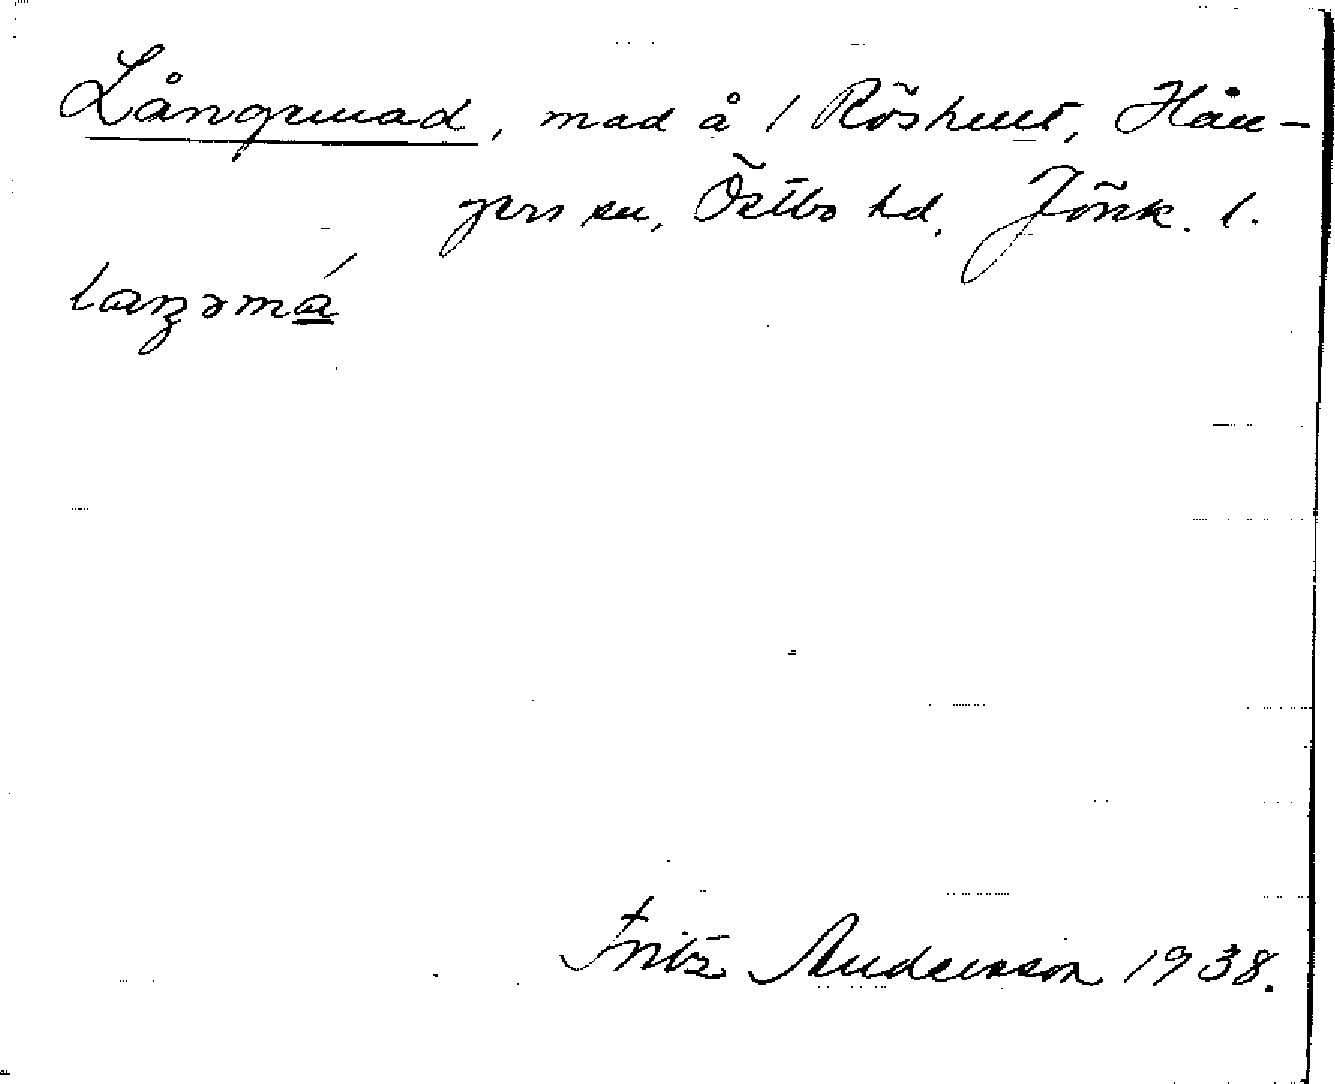 Långemad, mad å 1 Röshult, Hån-
gers sn, Östbo hd, Jönk. l.
Fritz Andersson 1938.